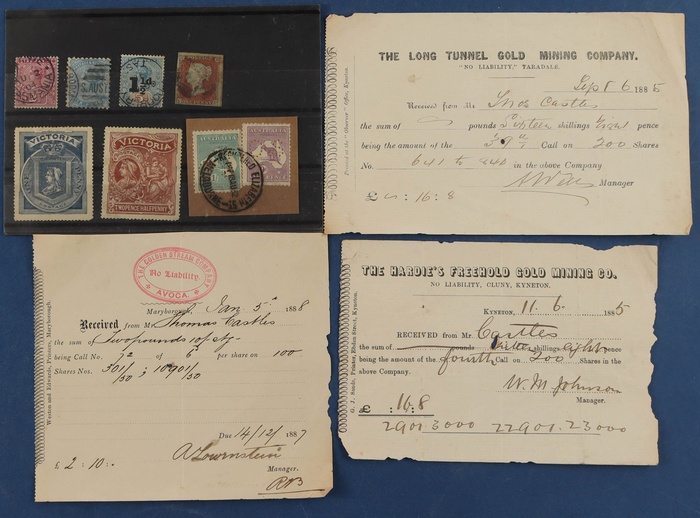 VICTORIA
VICTORIA
TWOPENCE HALFPENNY
AUSTRALIA
AUSTRALIA
REGISTERED ELIZABETH ST
1½d.
Printed at the "Observer" Office, Kyneton.
THE LONG TUNNEL GOLD MINING COMPANY.
"NO LIABILITY," TARADALE.
Sept 6 1885
Received from Mr Thos Castles
the sum of pounds Sixteen shillings Eight pence
being the amount of the 39th Call on 200 Shares
No. 641 to 840 in the above Company
Manager
£ : 16 : 8
THE GOLDEN STREAM COMPANY
No Liability.
AVOCA.
Weston and Edwards, Printers, Maryborough.
Maryborough, Jan 5th 1888
Received from Mr Thomas Castles
the sum of Two pounds 10/ stg
being Call No. 72 of 6d per share on 100
Shares Nos. 301/350 ; 10901/50
Due 14/12/1887
A Lowenstein
Manager.
£ 2 : 10 : -
THE HARDIE'S FREEHOLD GOLD MINING CO.
NO LIABILITY, CLUNY, KYNETON.
G. J. Sands, Printer, Ebden Street, Kyneton.
KYNETON, 11. 6. 1885
RECEIVED from Mr. Castles
the sum of pounds sixteen shillings eight pence
being the amount of the fourth Call on 200 Shares in the
above Company.
W. M. Johnson
Manager.
£ : 16 : 8
2901 3000 22901. 23000